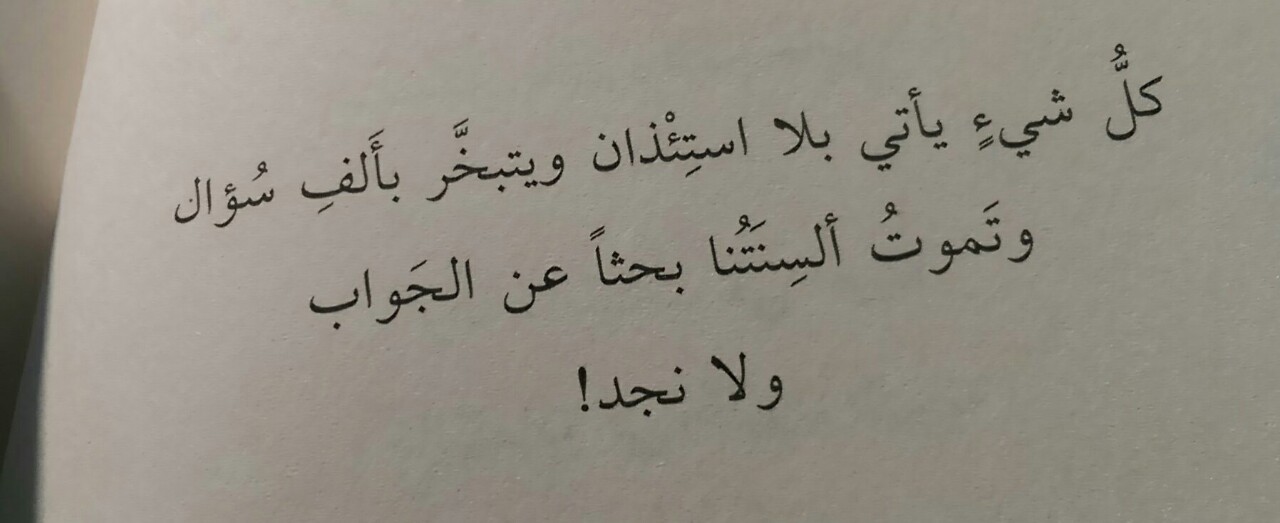 كلُّ شيءٍ يأتي بلا استِئْذان ويتبخَّر بأَلفِ سُؤال
وتَموتُ ألسِنَتُنا بحثاً عن الجَواب
ولا نجد!